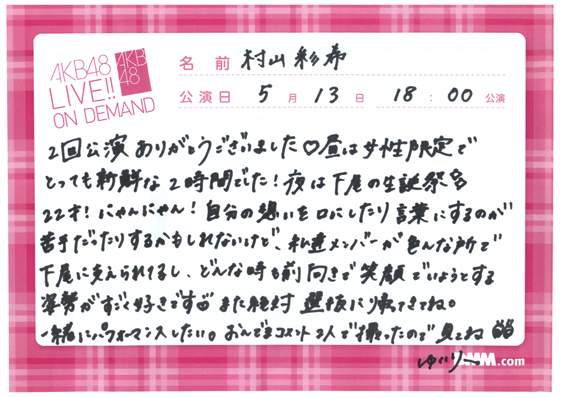 AKB48
LIVE!!
ON DEMAND
AKB
48
名前 村山彩希
公演日 5月13日 18:00公演
2回公演ありがとうございました♡昼は女性限定で
とっても新鮮な2時間でした!夜は下尾の生誕祭
22才!にゃんにゃん!自分の想いを口にしたり言葉にするのが
苦手だったりするかもしれないけど、私達メンバーが色んな所で
下尾に支えられてるし、どんな時も前向きで笑顔でいようとする
姿勢がすごく好きです また絶対 選抜に帰ってきてね。
一緒にパフォーマンスしたい。おんでまコメント2人で撮ったので見てね
ゆいりー
.com